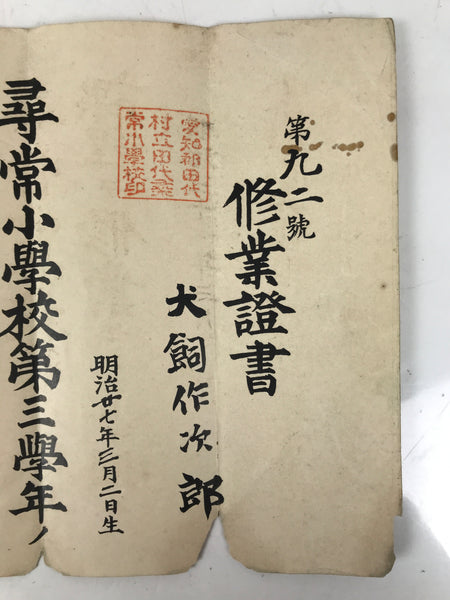 第九二號
修業證書
犬飼作次郎
明治廿七年三月二日生
愛知郡田代
村立田代尋
常小學校印
尋常小學校第三學年ノ